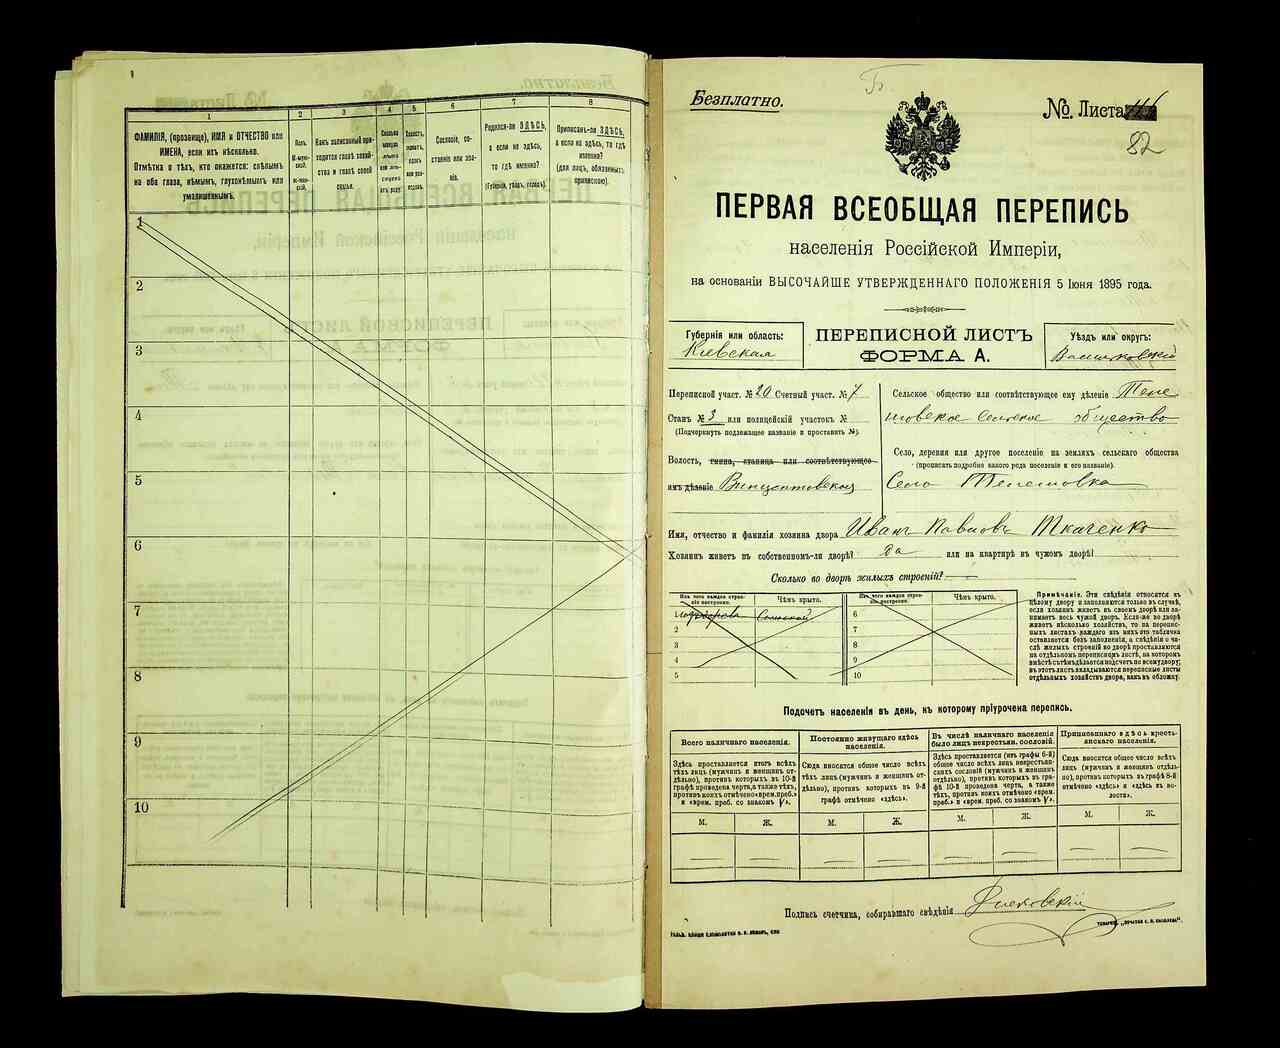 1 2 3 4 5 6 7 8
ФАМИЛІЯ, (прозвище), ИМЯ и ОТЧЕСТВО или
ИМЕНА, если ихъ нѣсколько.
Отмѣтка о тѣхъ, кто окажется: слѣпымъ
на оба глаза, нѣмымъ, глухонѣмымъ или
умалишеннымъ.
Полъ.
М-мужской.
Ж-женскій.
Какъ записанный приходится главѣ хозяйства и главѣ своей семьи.
Сословіе, состояніе или званіе.
Родился-ли ЗДѢСЬ,
а если не здѣсь,
то гдѣ именно?
(Губернія, уѣздъ, городъ).
Приписанъ-ли ЗДѢСЬ,
а если не здѣсь, то гдѣ
именно?
(для лицъ, обязанныхъ
припискою).
1
2
3
4
5
6
7
8
9
10
Безплатно.
№ Листа
82
ПЕРВАЯ ВСЕОБЩАЯ ПЕРЕПИСЬ
населенія Россійской Имперіи,
на основаніи ВЫСОЧАЙШЕ УТВЕРЖДЕННАГО ПОЛОЖЕНІЯ 5 Іюня 1895 года.
Губернія или область:
Кіевская
ПЕРЕПИСНОЙ ЛИСТЪ
ФОРМА А.
Уѣздъ или округъ:
Переписной участ. № 20 Счетный участ. № 7
Станъ № 3 или полицейскій участокъ №
(Подчеркнуть подлежащее названіе и проставить №).
Волость, гмина, станица или соотвѣтствующее
имъ дѣленіе
Сельское общество или соотвѣтствующее ему дѣленіе
сельское общество
Село, деревня или другое поселеніе на земляхъ сельскаго общества
(прописать подробно какого рода поселеніе и его названіе).
Село
Имя, отчество и фамилія хозяина двора Иванъ Павловъ Ткаченко
Хозяинъ живетъ въ собственномъ-ли дворѣ? да или на квартирѣ въ чужомъ дворѣ?
Сколько во дворѣ жилыхъ строеній? —
Изъ чего каждое строеніе построено. Чѣмъ крыто. Изъ чего каждое строеніе построено. Чѣмъ крыто.
1 Соломой 6
2 7
3 8
4 9
5 10
Примѣчаніе. Эти свѣдѣнія относятся къ
цѣлому двору и заполняются только въ случаѣ,
если хозяинъ живетъ въ своемъ дворѣ или занимаетъ весь чужой дворъ. Если-же во дворѣ
живетъ нѣсколько хозяйствъ, то на переписныхъ листахъ каждаго изъ нихъ эта табличка
оставляется безъ заполненія, а свѣдѣнія о числѣ жилыхъ строеній во дворѣ проставляются
на отдѣльномъ переписномъ листѣ, на которомъ
вмѣстѣ съ тѣмъ дѣлается подсчетъ по всему двору;
въ этотъ листъ вкладываются переписные листы
отдѣльныхъ хозяйствъ двора, какъ въ обложку.
Подсчетъ населенія въ день, къ которому пріурочена перепись.
Всего наличнаго населенія.
Здѣсь проставляется итогъ всѣхъ
тѣхъ лицъ (мужчинъ и женщинъ отдѣльно), противъ которыхъ въ 10-й
графѣ проведена черта, а также тѣхъ,
противъ коихъ отмѣчено «врем. преб.»
и «врем. преб. со знакомъ V».
Постоянно живущаго здѣсь
населенія.
Сюда вносится общее число всѣхъ
тѣхъ лицъ (мужчинъ и женщинъ отдѣльно), противъ которыхъ въ 9-й
графѣ отмѣчено «здѣсь».
Въ числѣ наличнаго населенія
было лицъ некрестьян. сословій.
Здѣсь проставляется (изъ графы 6-й)
общее число всѣхъ лицъ некрестьянскихъ сословій (мужчинъ и женщинъ
отдѣльно), противъ которыхъ въ графѣ 10-й проведена черта, а также
тѣхъ, противъ коихъ отмѣчено «врем.
преб.» и «врем. преб. со знакомъ V».
Приписаннаго здѣсь крестьянскаго населенія.
Сюда вносится общее число всѣхъ
лицъ (мужчинъ и женщинъ отдѣльно), противъ которыхъ въ графѣ 8-й
отмѣчено «здѣсь» и «здѣсь въ волости».
М. Ж. М. Ж. М. Ж. М. Ж.
— — — — — — — —
Подпись счетчика, собиравшаго свѣдѣнія